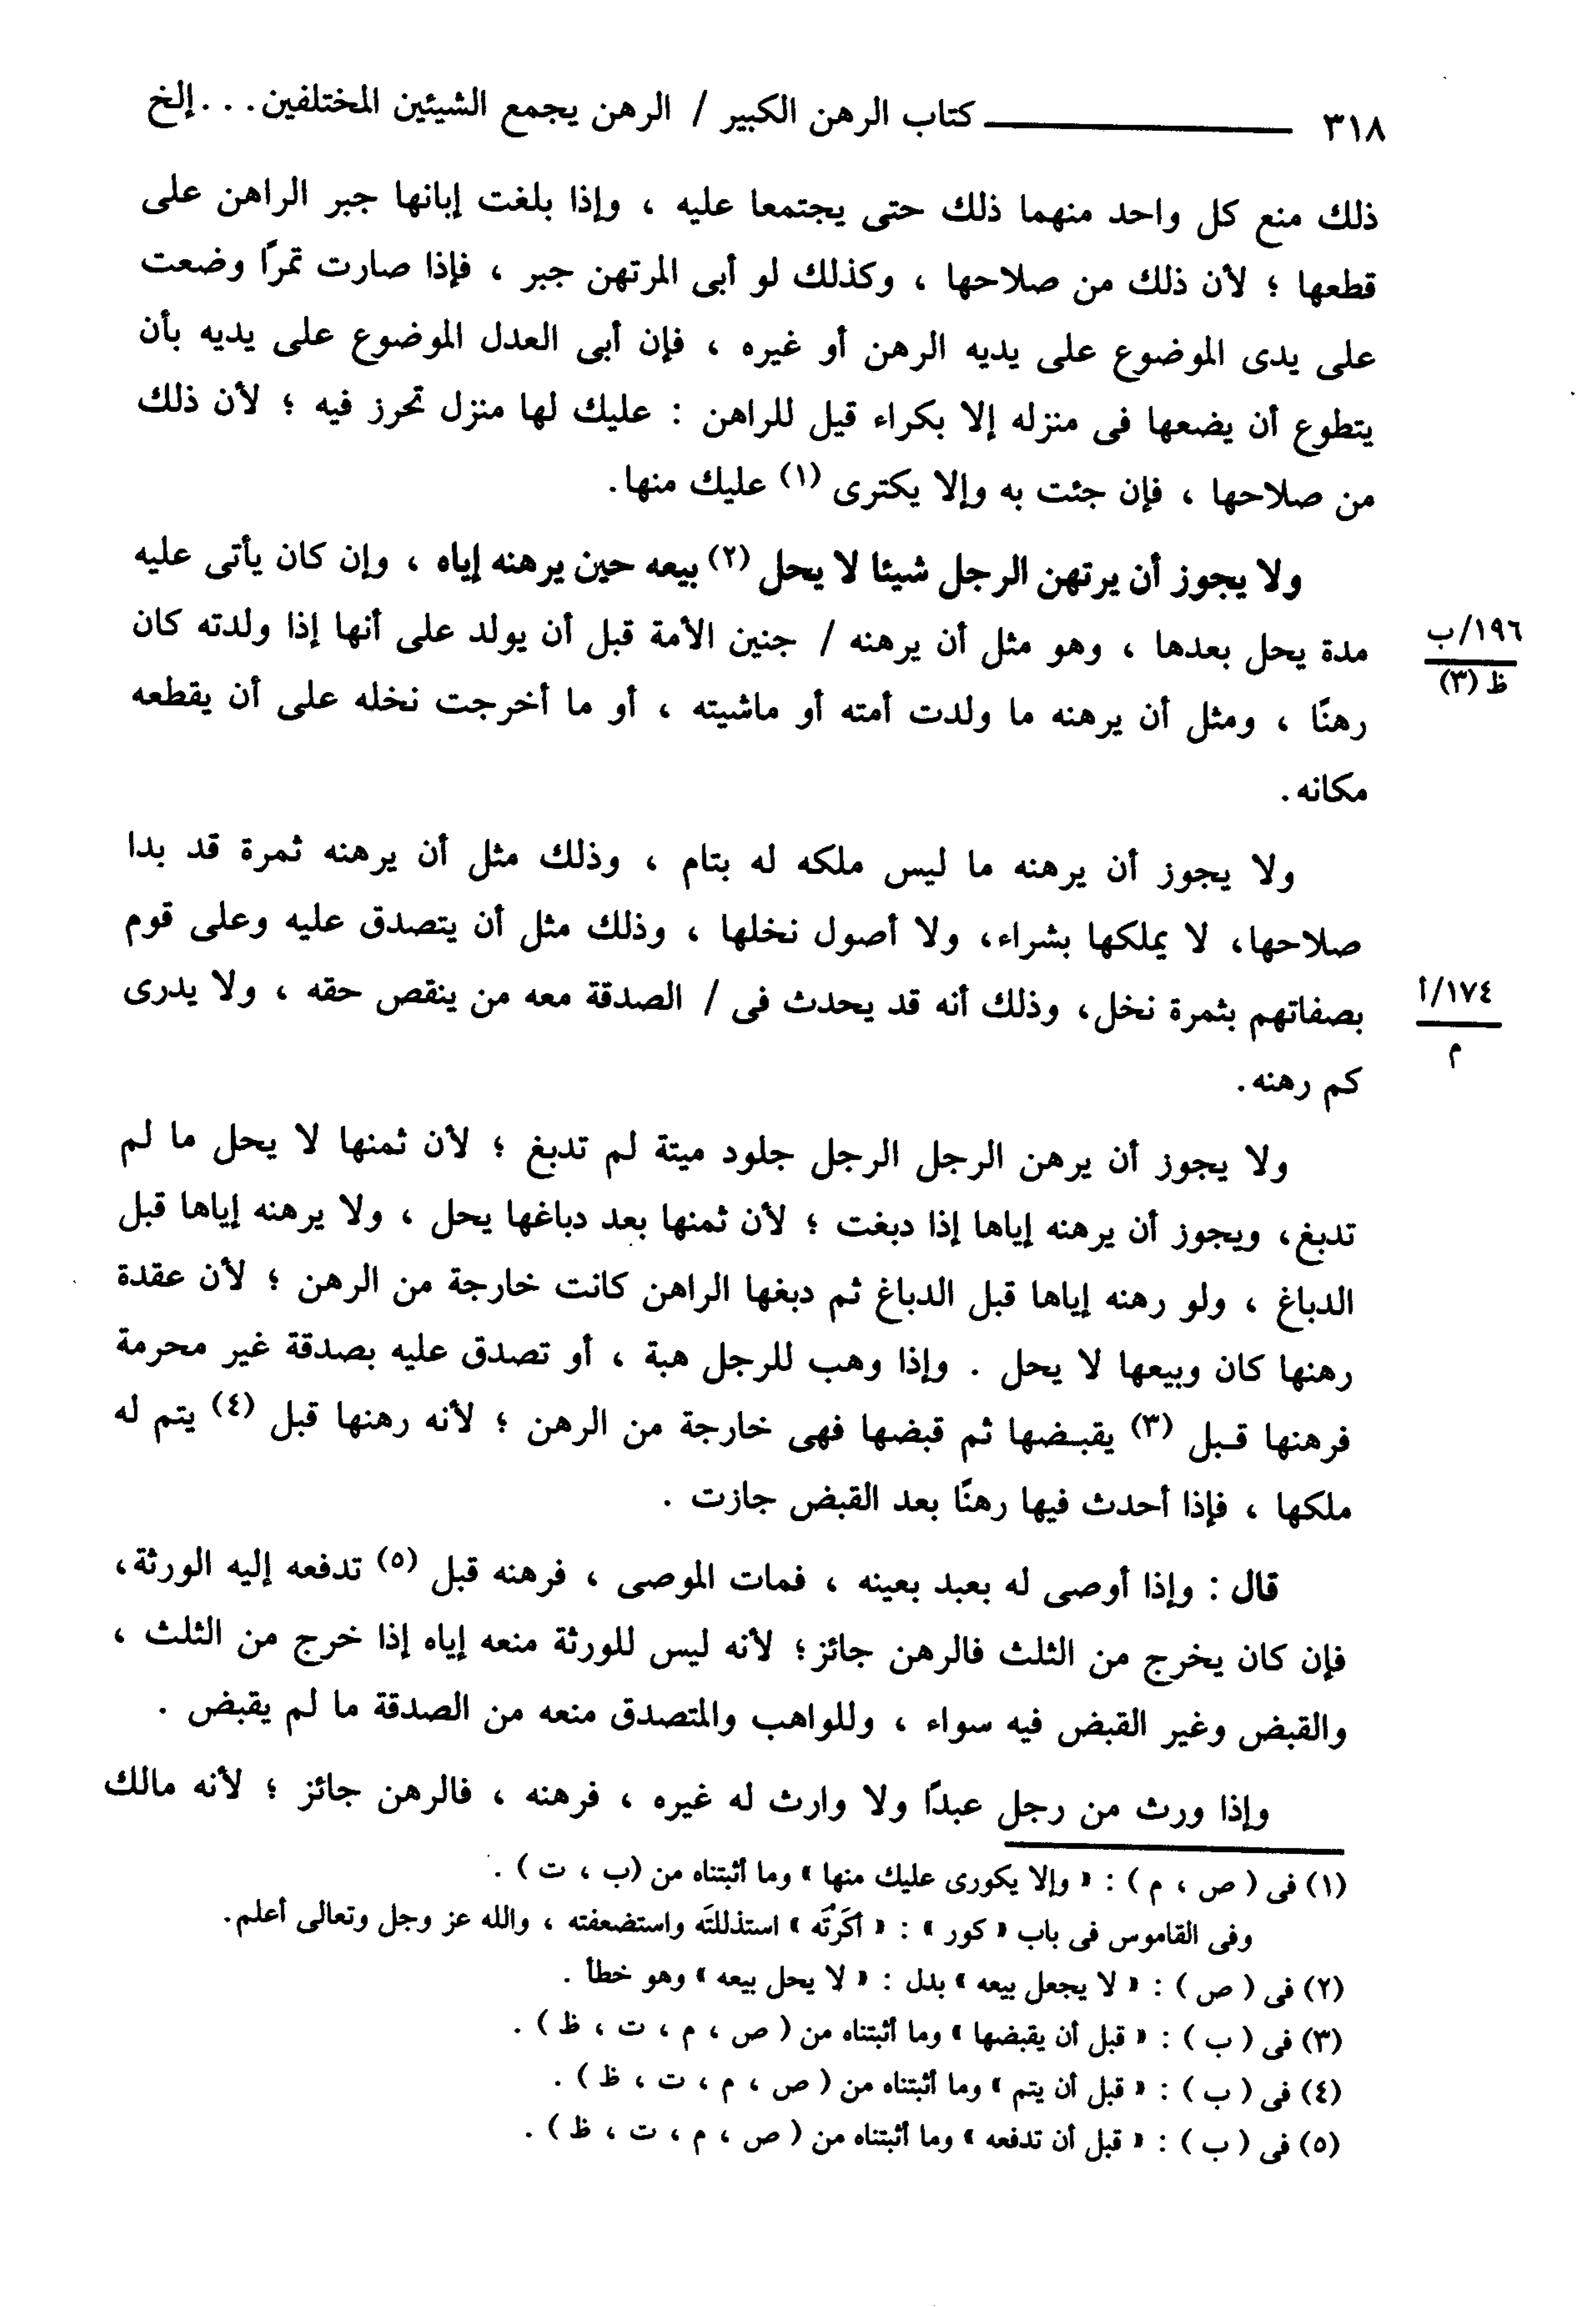 ٣١٨ ــــــ كتاب الرهن الكبير / الرهن يجمع الشيئين المختلفين . . . إلخ
ذلك منع كل واحد منهما ذلك حتى يجتمعا عليه ، وإذا بلغت إبانها جبر الراهن على
قطعها ؛ لأن ذلك من صلاحها ، وكذلك لو أبى المرتهن جبر ، فإذا صارت تمرًا وضعت
على يدى الموضوع على يديه الرهن أو غيره ، فإن أبى العدل الموضوع على يديه بأن
يتطوع أن يضعها فى منزله إلا بكراء قيل للراهن : عليك لها منزل تحرز فيه ؛ لأن ذلك
من صلاحها ، فإن جئت به وإلا يكترى (١) عليك منها.
ولا يجوز أن يرتهن الرجل شيئا لا يحل (٢) بيعه حين يرهنه إياه ، وإن كان يأتى عليه
مدة يحل بعدها ، وهو مثل أن يرهنه / جنين الأمة قبل أن يولد على أنها إذا ولدته كان
١٩٦/ب
ظ (٣)
رهنًا ، ومثل أن يرهنه ما ولدت أمته أو ماشيته ، أو ما أخرجت نخله على أن يقطعه
مكانه.
ولا يجوز أن يرهنه ما ليس ملكه له بتام ، وذلك مثل أن يرهنه ثمرة قد بدا
صلاحها، لا يملكها بشراء، ولا أصول نخلها ، وذلك مثل أن يتصدق عليه وعلى قوم
بصفاتهم بثمرة نخل، وذلك أنه قد يحدث فى / الصدقة معه من ينقص حقه ، ولا يدرى
١٧٤/أ
م
كم رهنه.
ولا يجوز أن يرهن الرجل الرجل جلود ميتة لم تدبغ ؛ لأن ثمنها لا يحل ما لم
تدبغ، ويجوز أن يرهنه إياها إذا دبغت ؛ لأن ثمنها بعد دباغها يحل ، ولا يرهنه إياها قبل
الدباغ ، ولو رهنه إياها قبل الدباغ ثم دبغها الراهن كانت خارجة من الرهن ؛ لأن عقدة
رهنها كان وبيعها لا يحل . وإذا وهب للرجل هبة ، أو تصدق عليه بصدقة غير محرمة
فرهنها قـبل (٣) يقبـضها ثم قبضها فهى خارجة من الرهن ؛ لأنه رهنها قبل (٤) يتم له
ملكها ، فإذا أحدث فيها رهنًا بعد القبض جازت .
قال : وإذا أوصى له بعبد بعينه ، فمات الموصى ، فرهنه قبل (٥) تدفعه إليه الورثة،
فإن كان يخرج من الثلث فالرهن جائز؛ لأنه ليس للورثة منعه إياه إذا خرج من الثلث ،
والقبض وغير القبض فيه سواء ، وللواهب والمتصدق منعه من الصدقة ما لم يقبض .
وإذا ورث من رجل عبدًا ولا وارث له غيره ، فرهنه ، فالرهن جائز ؛ لأنه مالك
(١) فى ( ص ، م ) : « وإلا يكورى عليك منها » وما أثبتناه من (ب ، ت ) .
وفى القاموس فى باب « كور » : « أكَرتُه » استذللتَه واستضعفته ، والله عز وجل وتعالى أعلم.
(٢) فى ( ص ) : « لا يجعل بيعه » بدل : « لا يحل بيعه » وهو خطأ .
(٣) فى ( ب ) : « قبل أن يقبضها » وما أثبتناه من ( ص ، م ، ت ، ظ ) .
(٤) فى ( ب ) : « قبل أن يتم » وما أثبتناه من ( ص ، م ، ت ، ظ ) .
(٥) فى ( ب ) : « قبل أن تدفعه » وما أثبتناه من ( ص ، م ، ت ، ظ ) .